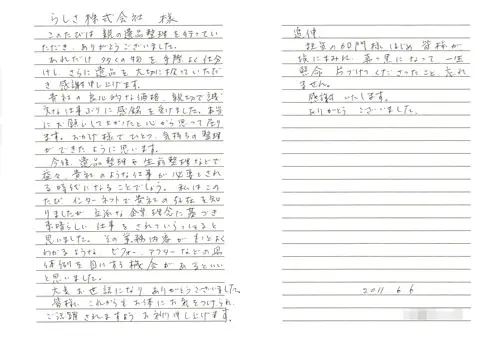 らしさ株式会社 様
このたびは 親の遺品整理を行って
いただき、ありがとうございました。
あれだけ 多くの物を 手際よく 仕分
けし、さらに遺品を 大切に扱っていただ
き 感謝申し上げます。
貴社の 良心的な価格、親切で誠
実な仕事ぶりに感銘を受けました。本当
にお願いしてよかったと心から思っており
ます。おかげ様で ひとつ、気持ちの整理
ができたように思います。
今後、遺品整理や生前整理などで
益々、貴社のような仕事が必要とされ
る時代になることでしょう。私はこの
たび インターネットで貴社の存在を知
りましたが 立派な企業理念に基づき
素晴らしい 仕事を されていらっしゃると
思いました。その業務内容が もっとよく
わかるような ビフォー、アフターなどの
を目にする 機会が あるといい
と思いました。
大変お世話になり ありがとうございました。
皆様、これからも お体に お気をつけられ、
ご活躍 されますよう お祈り申し上げます。
追伸
担当の 門様はじめ 皆様が
埃にまみれ、真っ黒になって 一生
懸命 片づけてくださったこと、忘れ
ません。
感謝いたします。
ありがとう ございました。
2011 6 6